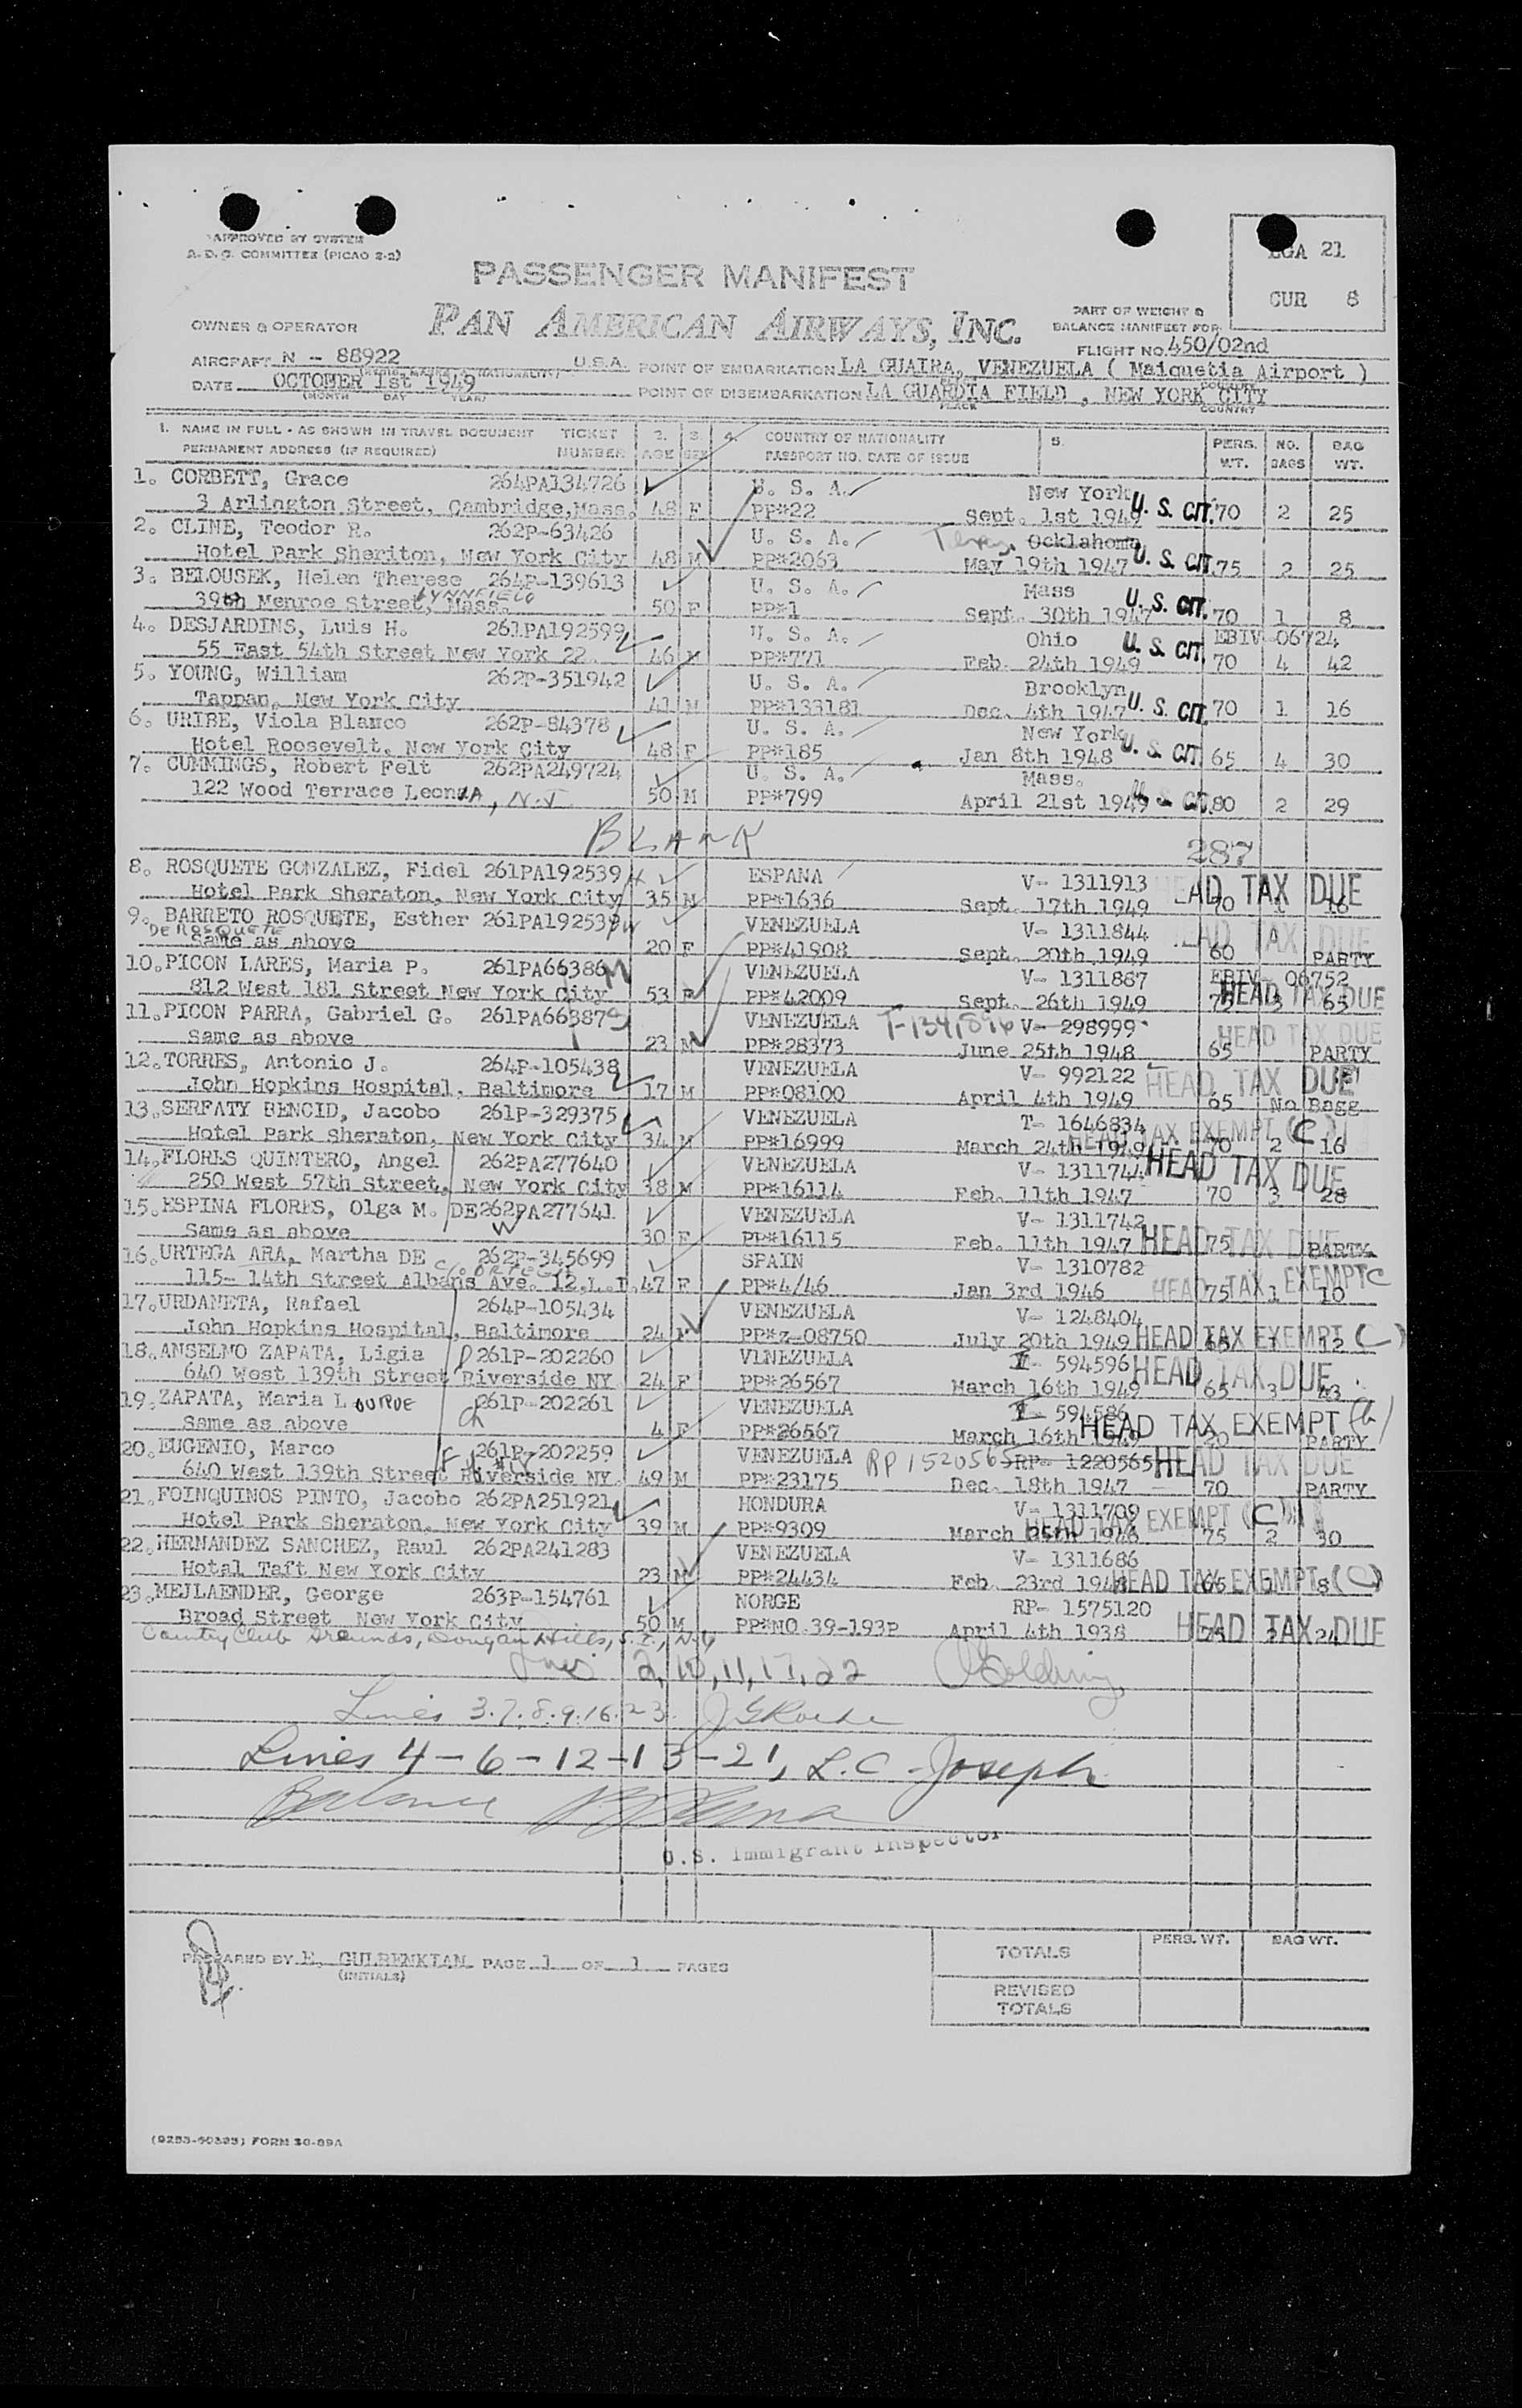 APPROVED BY SYSTEM
A.D.O. COMMITTEE (PICAO 2-2)
LGA 21
CUR 8
PASSENGER MANIFEST
OWNER & OPERATOR PAN AMERICAN AIRWAYS, INC.
PART OF WEIGHT &
BALANCE MANIFEST FOR
FLIGHT NO. 450/02nd
AIRCRAFT N - 88922 U.S.A. POINT OF EMBARKATION LA GUAIRA, VENEZUELA ( Maiquetia Airport )
DATE OCTOBER 1st 1949 POINT OF DISEMBARKATION LA GUARDIA FIELD , NEW YORK CITY
(MONTH DAY YEAR) PLACE COUNTRY
1. NAME IN FULL - AS SHOWN IN TRAVEL DOCUMENT TICKET 2. 3. 4. COUNTRY OF NATIONALITY 5. PERS. NO. BAG
PERMANENT ADDRESS (IF REQUIRED) NUMBER AGE SEX PASSPORT NO. DATE OF ISSUE WT. BAGS WT.
1. CORBETT, Grace 264PA134726 U. S. A. New York
3 Arlington Street, Cambridge,Mass. 48 F PP#22 Sept. 1st 1949 U. S. CIT. 70 2 25
2. CLINE, Teodor R. 262P-63426 U. S. A. Ocklahoma
Hotel Park Sheriton, New York City 48 M PP#2063 May 19th 1947 U. S. CIT. 75 2 25
3. BELOUSEK, Helen Therese 264P-139613 U. S. A. Mass
39th Menroe Street, LYNNFIELD Mass. 50 F PP#1 Sept. 30th 1947 U. S. CIT. 70 1 8
4. DESJARDINS, Luis H. 261PA192599 U. S. A. Ohio EBIV 06724
55 East 54th Street New York 22 46 M PP#771 Feb. 24th 1949 U. S. CIT. 70 4 42
5. YOUNG, William 262P-351942 U. S. A. Brooklyn
Tappan, New York City 41 M PP#133181 Dec. 4th 1947 U. S. CIT. 70 1 16
6. URIBE, Viola Blanco 262P-84378 U. S. A. New York
Hotel Roosevelt, New York City 48 F PP#185 Jan 8th 1948 U. S. CIT 65 4 30
7. CUMMINGS, Robert Felt 262PA249724 U. S. A. Mass.
122 Wood Terrace Leonia, N.J 50 M PP#799 April 21st 1949 U. S. CIT. 80 2 29
BLANK 287
8. ROSQUETE GONZALEZ, Fidel 261PA192539 ESPANA V- 1311913
Hotel Park Sheraton, New York City 35 M PP#1636 Sept. 17th 1949 HEAD TAX DUE 70 1 16
9. BARRETO ROSQUETE, Esther 261PA192539 VENEZUELA V- 1311844
DE ROSQUETE Same as above 20 F PP#41908 Sept. 20th 1949 HEAD TAX DUE 60 PARTY
10. PICON LARES, Maria P. 261PA66386 VENEZUELA V- 1311887 EBIV- 06752
812 West 181 Street New York City 53 F PP#42009 Sept. 26th 1949 HEAD TAX DUE 75 3 65
11. PICON PARRA, Gabriel G. 261PA66387 VENEZUELA T-1341896 V- 298999
Same as above 23 M PP#28373 June 25th 1948 HEAD TAX DUE 65 PARTY
12. TORRES, Antonio J. 264P-105438 VENEZUELA V- 992122
John Hopkins Hospital, Baltimore 17 M PP#08100 April 4th 1949 HEAD TAX DUE 65 No Bagg
13. SERFATY BENCID, Jacobo 261P-329375 VENEZUELA T- 1646834
Hotel Park Sheraton, New York City 34 M PP#16999 March 24th 1949 HEAD TAX EXEMPT (C) 70 2 16
14. FLORES QUINTERO, Angel 262PA277640 VENEZUELA V- 1311744
250 West 57th Street, New York City 38 M PP#16114 Feb. 11th 1947 HEAD TAX DUE 70 3 28
15. ESPINA FLORES, Olga M. DE 262PA277641 VENEZUELA V- 1311742
Same as above 30 F PP#16115 Feb. 11th 1947 HEAD TAX DUE 75 PARTY
16. URTEGA ARA, Martha DE 262P-345699 SPAIN V- 1310782
115- 14th Street Albans Ave. 12.L.I. 47 F PP#4/46 Jan 3rd 1946 HEAD TAX EXEMPT C 75 1 10
17. URDANETA, Rafael 264P-105434 VENEZUELA V- 1248404
John Hopkins Hospital, Baltimore 24 PP#z-08750 July 20th 1949 HEAD TAX EXEMPT (C) 65 1 12
18. ANSELMO ZAPATA, Ligia 261P-202260 VENEZUELA 594596
640 West 139th Street Riverside NY 24 F PP#26567 March 16th 1949 HEAD TAX DUE 65 3 43
19. ZAPATA, Maria L OURDE 261P-202261 VENEZUELA 594586
Same as above 4 F PP#26567 March 16th 1949 HEAD TAX EXEMPT 20 PARTY
20. EUGENIO, Marco 261P-202259 VENEZUELA RP 1520565 RP- 1220565
640 West 139th Street Riverside NY. 49 M PP#23175 Dec. 18th 1947 HEAD TAX DUE 70 PARTY
21. FOINQUINOS PINTO, Jacobo 262PA251921 HONDURA V- 1311709
Hotel Park Sheraton, New York City 39 M PP#9309 March 26th 1946 HEAD TAX EXEMPT (C) 75 2 30
22. HERNANDEZ SANCHEZ, Raul 262PA241283 VENEZUELA V- 1311686
Hotal Taft New York City 23 M PP#24434 Feb. 23rd 1948 HEAD TAX EXEMPT (C) 65 1 8
23. MEJLAENDER, George 263P-154761 NORGE RP- 1575120
Broad Street New York City 50 M PP#NO 39-193P April 4th 1938 HEAD TAX DUE 75 2 24
Country Club Grounds, Dongan Hills, S.I., N.Y
Lines 2, 10, 11, 17, 22 Golding
Lines 3.7.8.9.16.23. J G Roche
Lines 4-6-12-13-21, L.C. Joseph
Balance
U.S. Immigrant Inspector
PREPARED BY E. GULBENKIAN PAGE 1 OF 1 PAGES
(INITIALS)
PERS. WT. BAG WT.
TOTALS
REVISED
TOTALS
FORM 30-89A